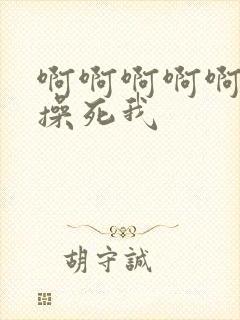 啊啊啊啊啊
操死我
胡守誠